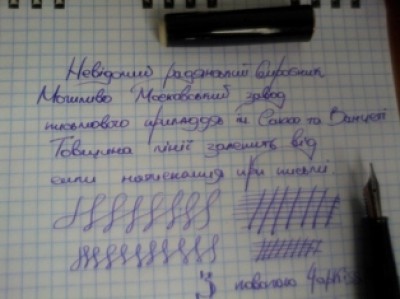 Невідомий радянський виробник
Можливо Московський завод
письмового приладдя ім Сакко та Ванцетті
Товщина лінії залежить від
сили натискання при письмі.
З повагою